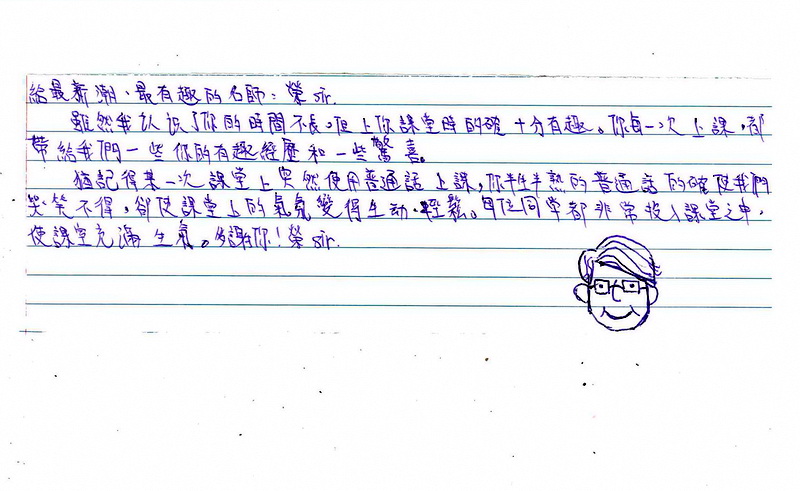 給最新潮、最有趣的名師：榮sir.
雖然我认识了你的時間不長，但上你課堂時的確十分有趣。你每一次上課，都
帶給我們一些你的有趣經歷和一些驚喜。
猶記得某一次課堂上突然使用普通話上課，你半生半熟的普通話的確使我們
哭笑不得，卻使課堂上的氣氛變得生动、輕鬆。每位同学都非常投入課堂之中，
使課室充滿生氣。多謝你！榮sir.